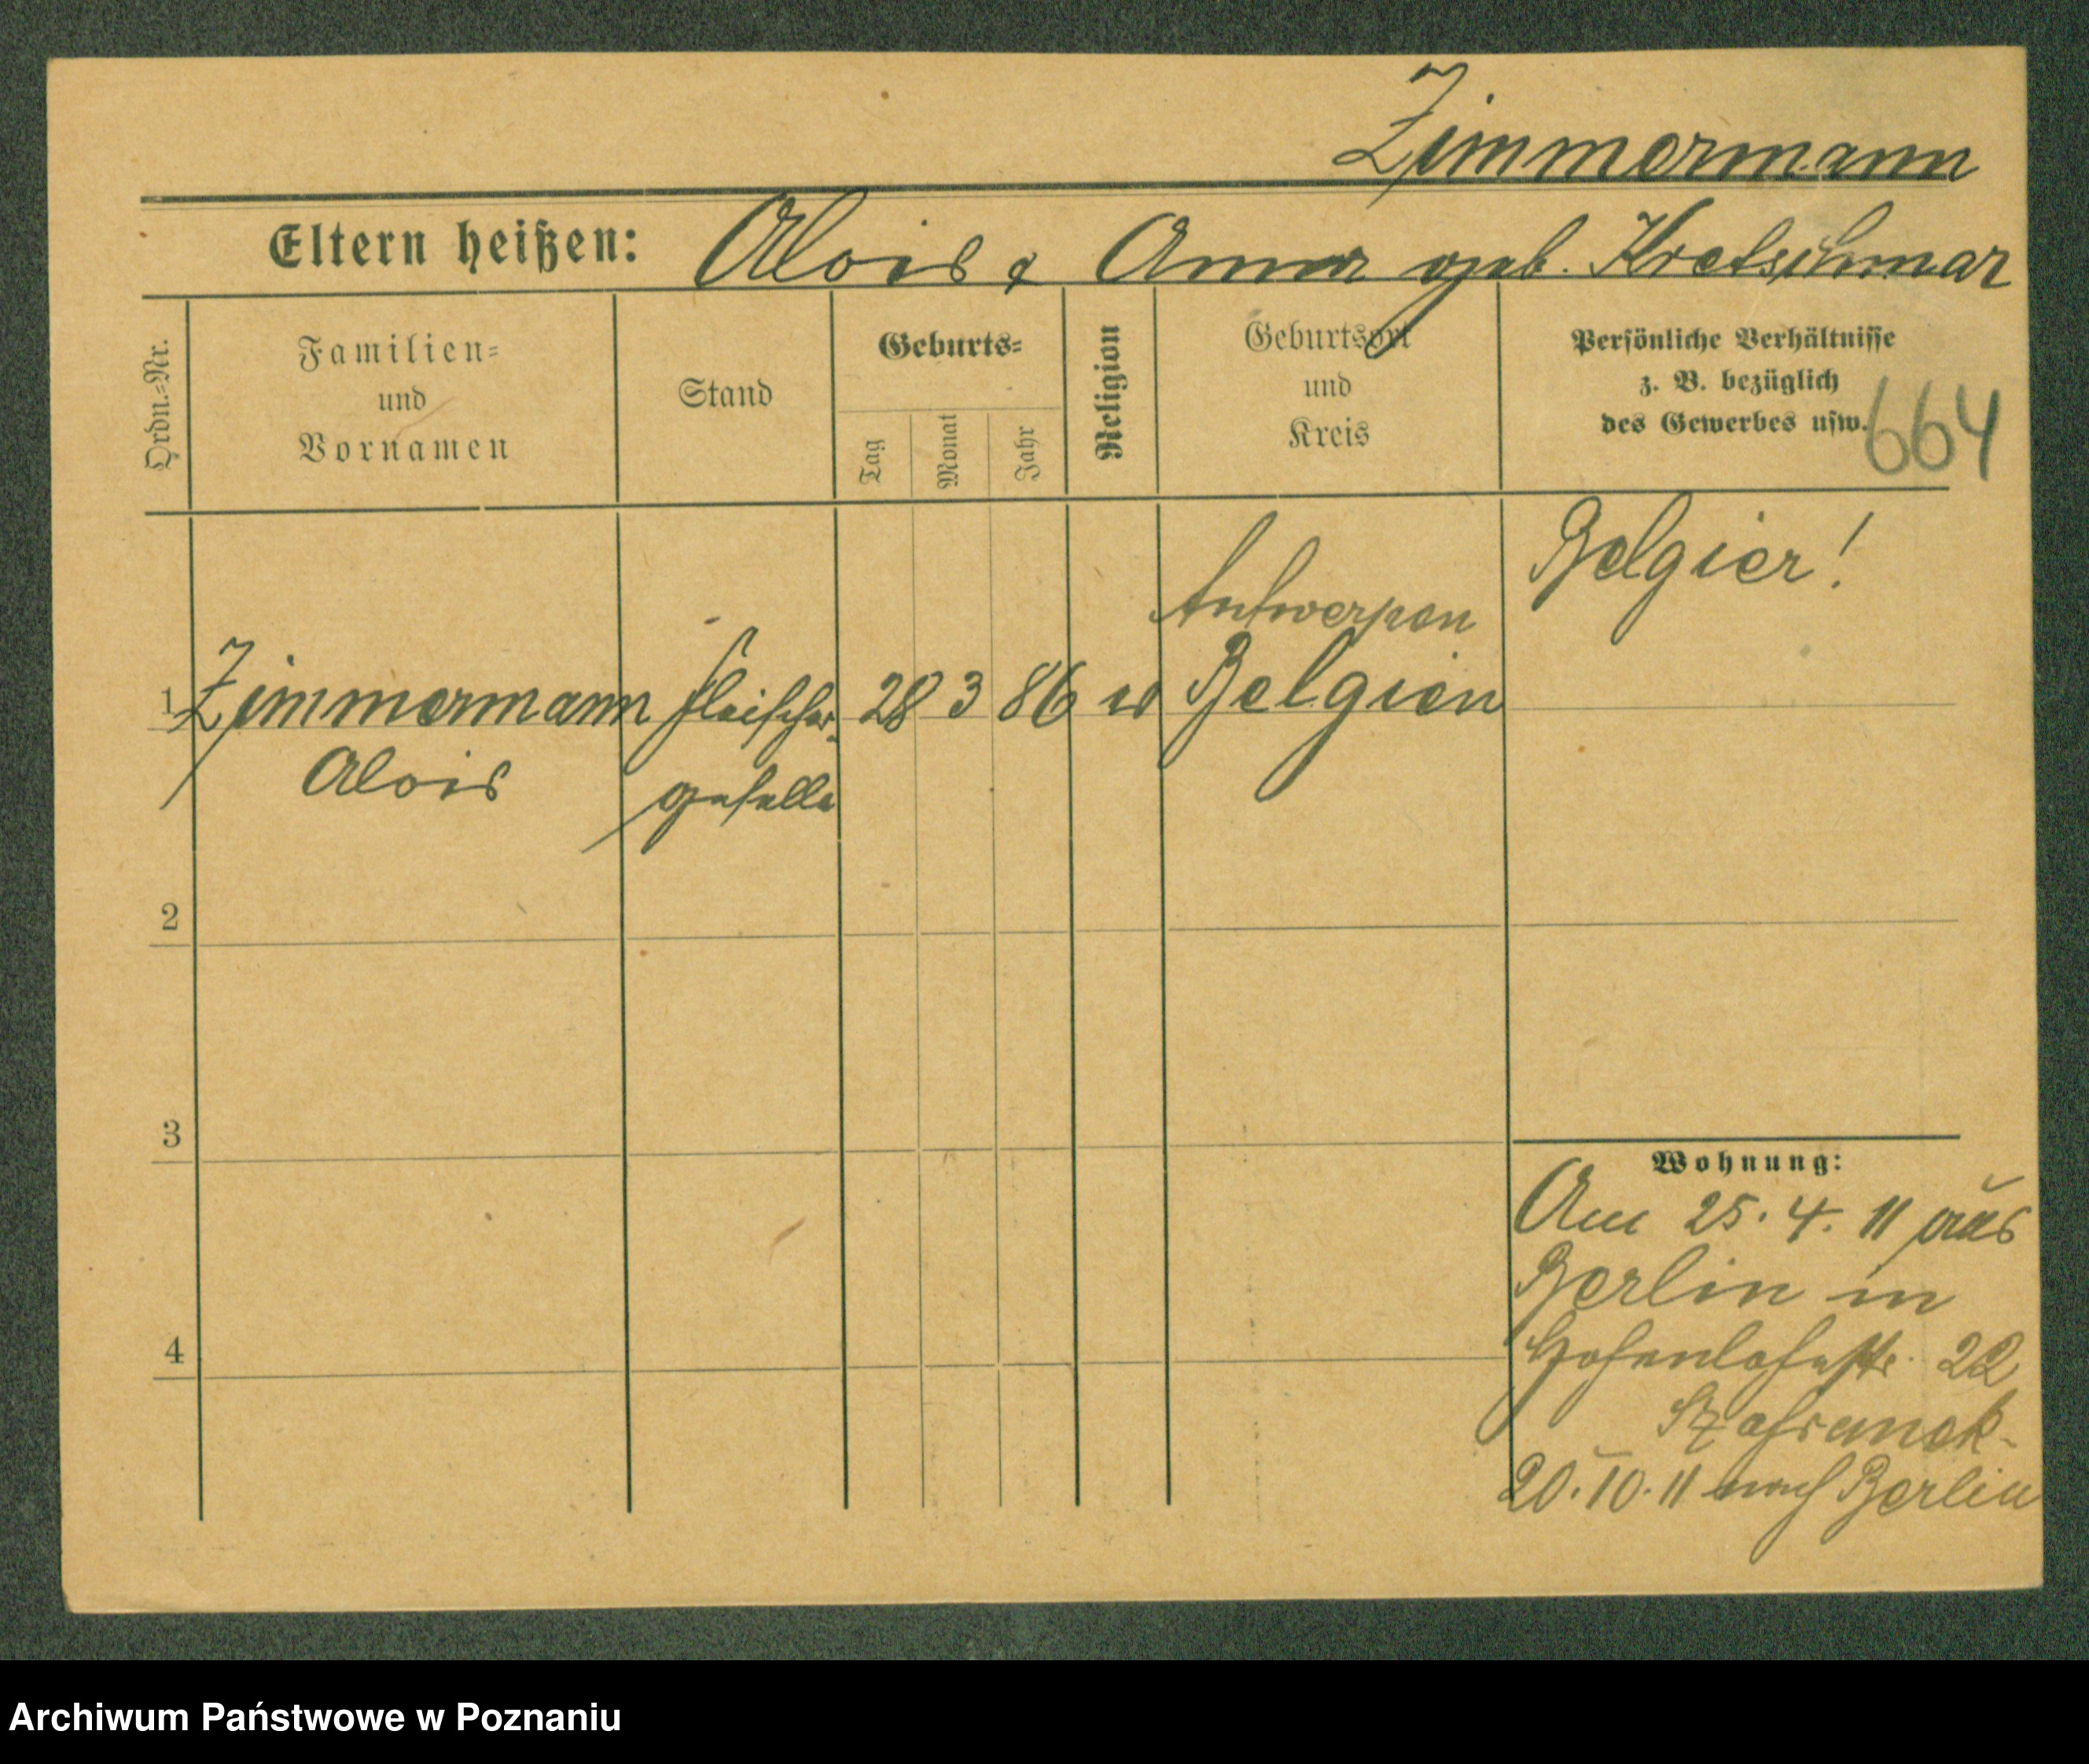 Zimmermann
Eltern heißen: Alois & Anna geb. Kretschmar
Ordn.=Nr.
Familien=
und
Vornamen
Stand
Geburts=
Tag
Monat
Jahr
Religion
Geburtsort
und
Kreis
Persönliche Verhältnisse
z. B. bezüglich
des Gewerbes usw.
664
Belgier!
Antwerpen
1 Zimmermann Fleischer- 28 3 86 Belgien
Alois geselle
2
3
4
Wohnung:
Am 25. 4. 11 aus
Berlin in
Hohenlohestr. 22
Szafranek
20. 10. 11 nach Berlin
Archiwum Państwowe w Poznaniu